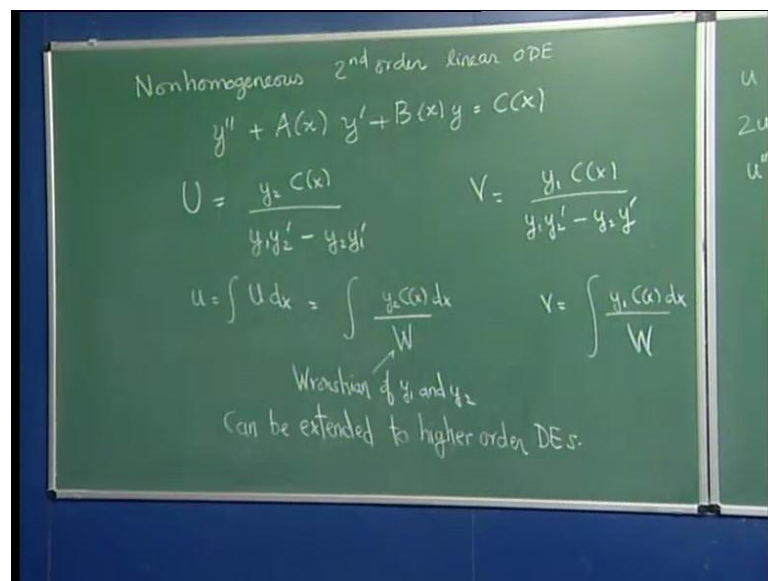 Nonhomogeneous 2nd order linear ODE
y'' + A(x) y' + B(x) y = C(x)
U = y₂ C(x) / y₁y₂' - y₂y₁' V = y₁ C(x) / y₁y₂' - y₂y'
u = ∫ U dx = ∫ y₂C(x) dx / W v = ∫ y₁ C(x) dx / W
Wronskian of y₁ and y₂
Can be extended to higher order DEs.
u
2u
u''